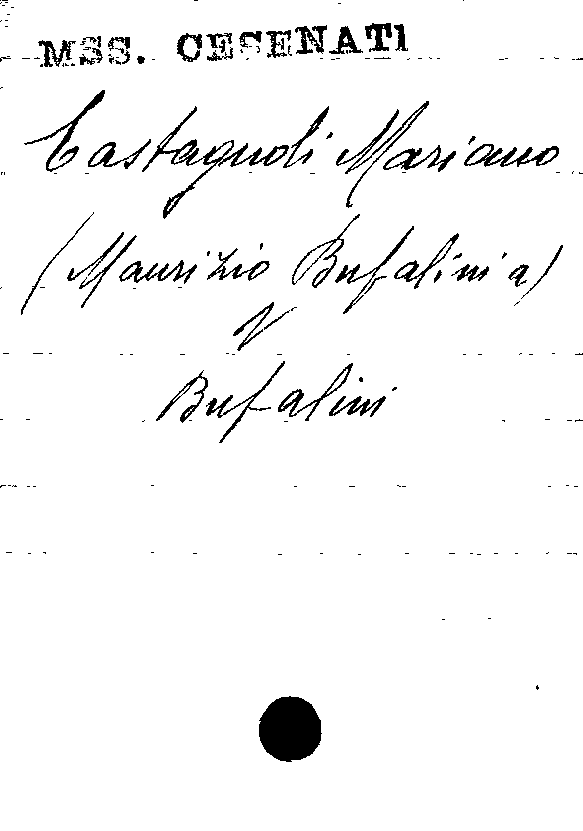 MSS. CESENATI
Castagnoli Mariano
(Maurizio Bufalini a)
V
Bufalini